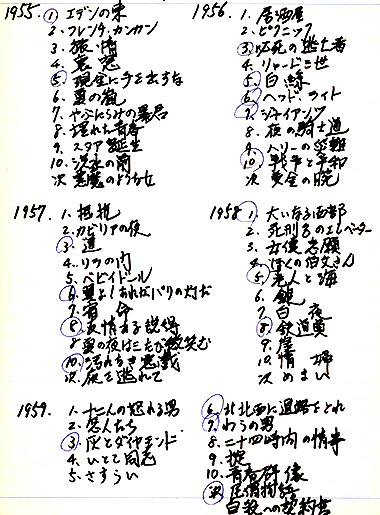 1955
1. エデンの東
2. フレンチ・カンカン
3. 旅情
4. 裏窓
5. 現金に手を出すな
6. 夏の嵐
7. やぶにらみの暴君
8. 埋れた青春
9. スタア誕生
10. 洪水の前
次 悪魔のような女
1956
1. 居酒屋
2. ピクニック
3. 必死の逃亡者
4. リチャード三世
5. 白鯨
6. ヘッド・ライト
7. ジャイアンツ
8. 夜の騎士道
9. ハリーの災難
10. 戦争と平和
次 黄金の腕
1957
1. 抵抗
2. カビリアの夜
3. 道
4. リラの門
5. ベビイドール
6. 翼よ!あれがパリの灯だ
7. 宿命
8. 友情ある説得
8 夏の夜は三たび微笑む
10. 汚れなき悪戯
次. 夜を逃れて
1958
1. 大いなる西部
2. 死刑台のエレベーター
3. 女優志願
4. ぼくの伯父さん
5. 老人と海
6.
7. 白夜
8. 鉄道員
9. 崖
10. 情婦
次 めまい
1959
1. 十二人の怒れる男
2. 恋人たち
3. 灰とダイヤモンド
4. いとこ同志
5. さすらい
6. 北北西に進路をとれ
7. わらの男
8. 二十四時間の情事
9. 掟
10. 青春群像
次 尼僧物語
自殺への契約書